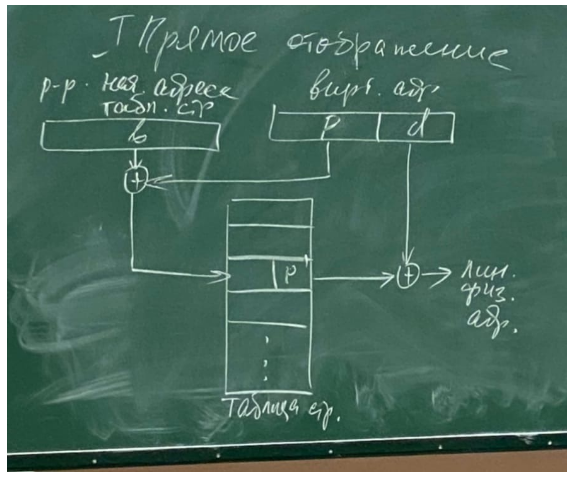 I Прямое отображение
р-р. нач. адреса
табл. стр
вирт. адр.
b
p d
+
p
+
лин.
физ.
адр.
Таблица стр.